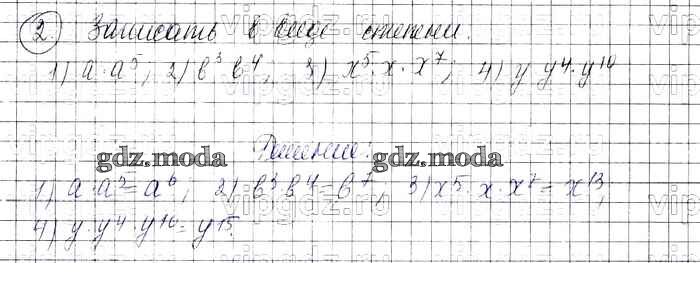 2. Записать в виде степени.
1) a·a⁵; 2) b³ b⁴; 3) x⁵·x·x⁷; 4) y·y⁴·y¹⁰
Решение:
gdz.moda gdz.moda
1) a·a⁵=a⁶; 2) b³·b⁴=b⁷, 3) x⁵·x·x⁷=x¹³;
4) y·y⁴·y¹⁰=y¹⁵.
vipgdz.ru